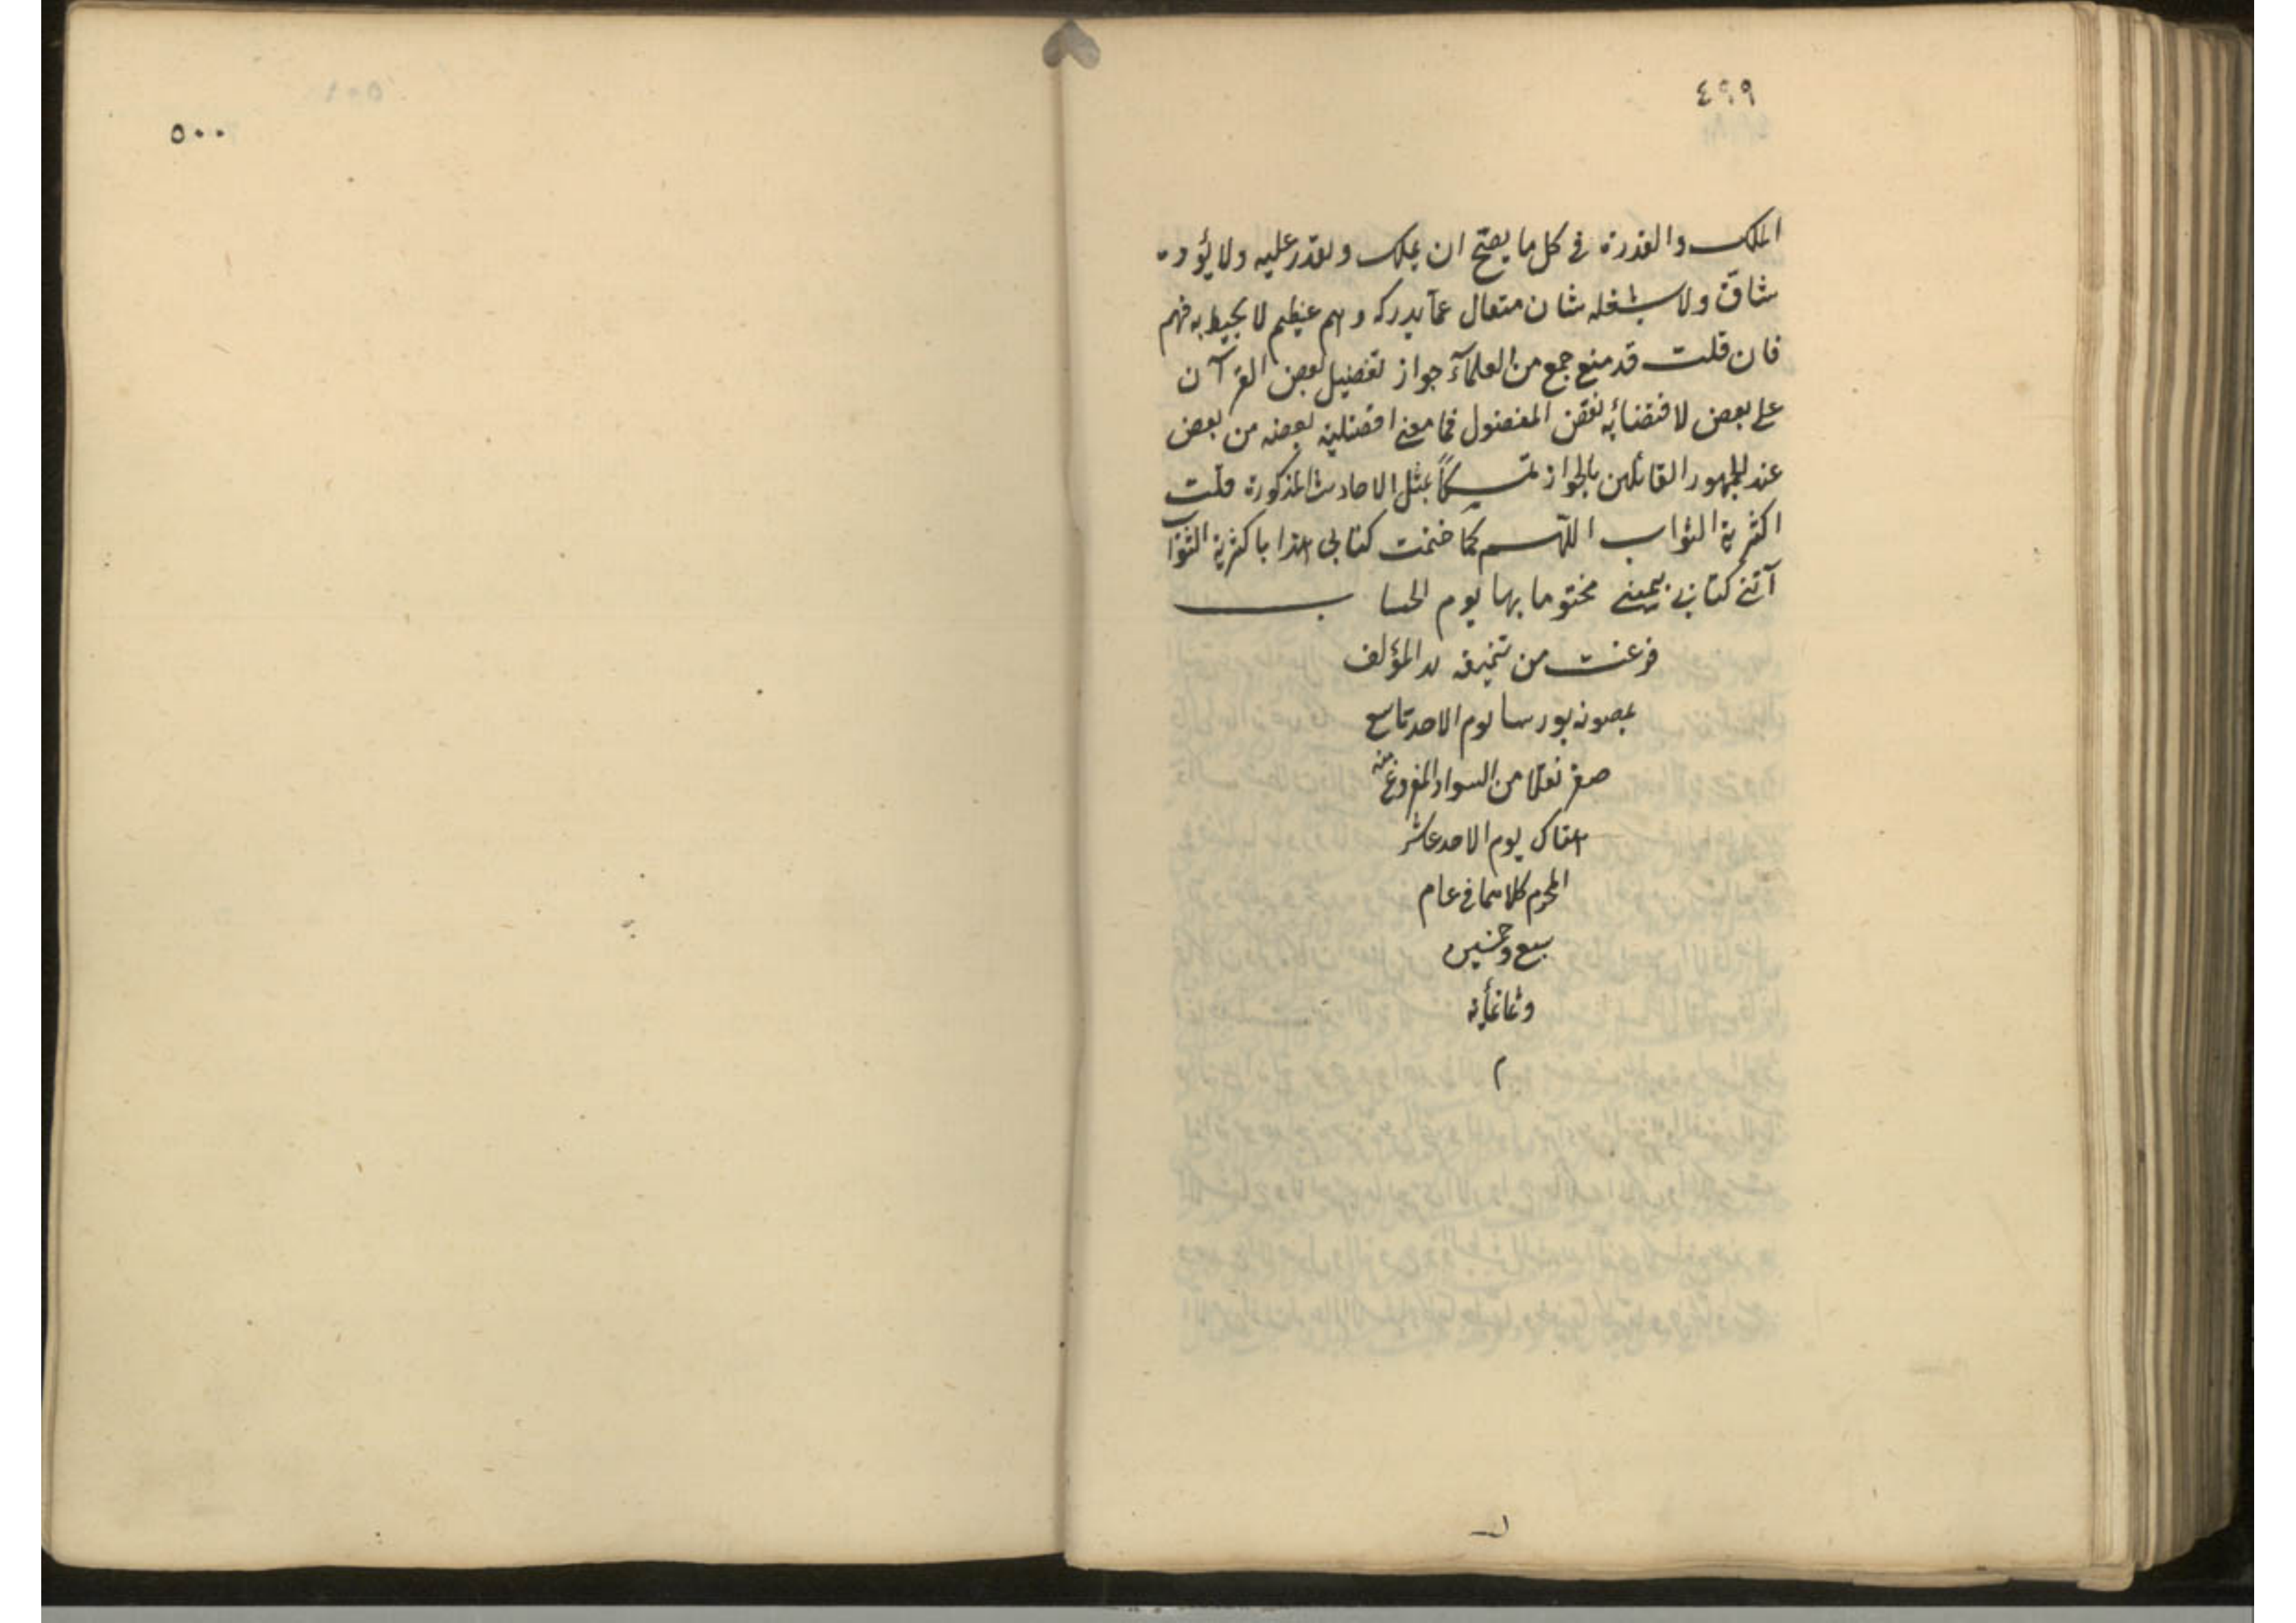 ٤٩٩
الملك والقدرة في كل ما يصح ان يملك ويقدر عليه ولا يؤوده
شاق ولا يشغله شان متعال عما يدركه وهم عظيم لا يحيط به فهم
فان قلت قد منع جمع من العلمآء جواز تفضيل بعض القرآن
على بعض لاقتضائه نقص المفضول فما معنى افضلية بعضه من بعض
عند الجمهور القائلين بالجواز تمسكاً بمثل الاحاديث المذكورة قلت
اكثرية الثواب اللّهم كما ختمت كتابي هذا باكثرية الثواب
آتني كتابي بيميني مختوما بها يوم الحساب
فرغت من تنميقه المؤلف
ببورسا يوم الاحد تاسع
صفر نقلا من السواد المفروغ منه
هناك يوم الاحد عاشر
المحرم كلاهما في عام
سبع وخمسين
وثمانمأية
م
٥٠٠